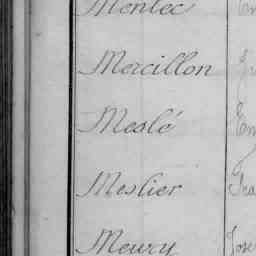 Menlec
Mercillon
Meslé Em
Meslier
Meury Jose